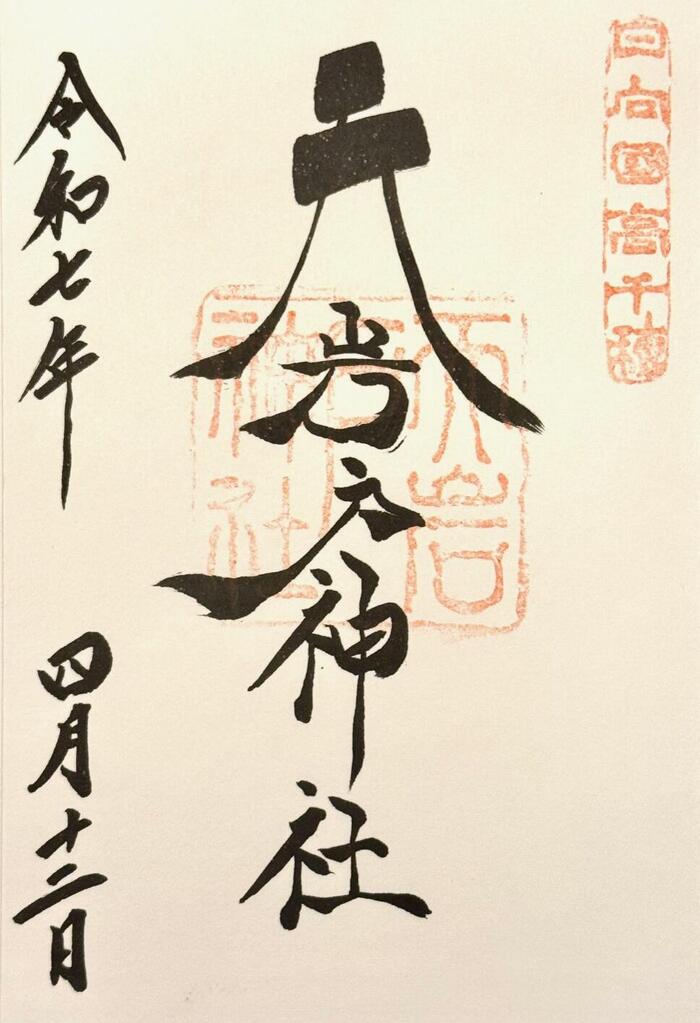 日向国高千穂
天岩戸神社
天岩戸神社
令和七年 四月十二日